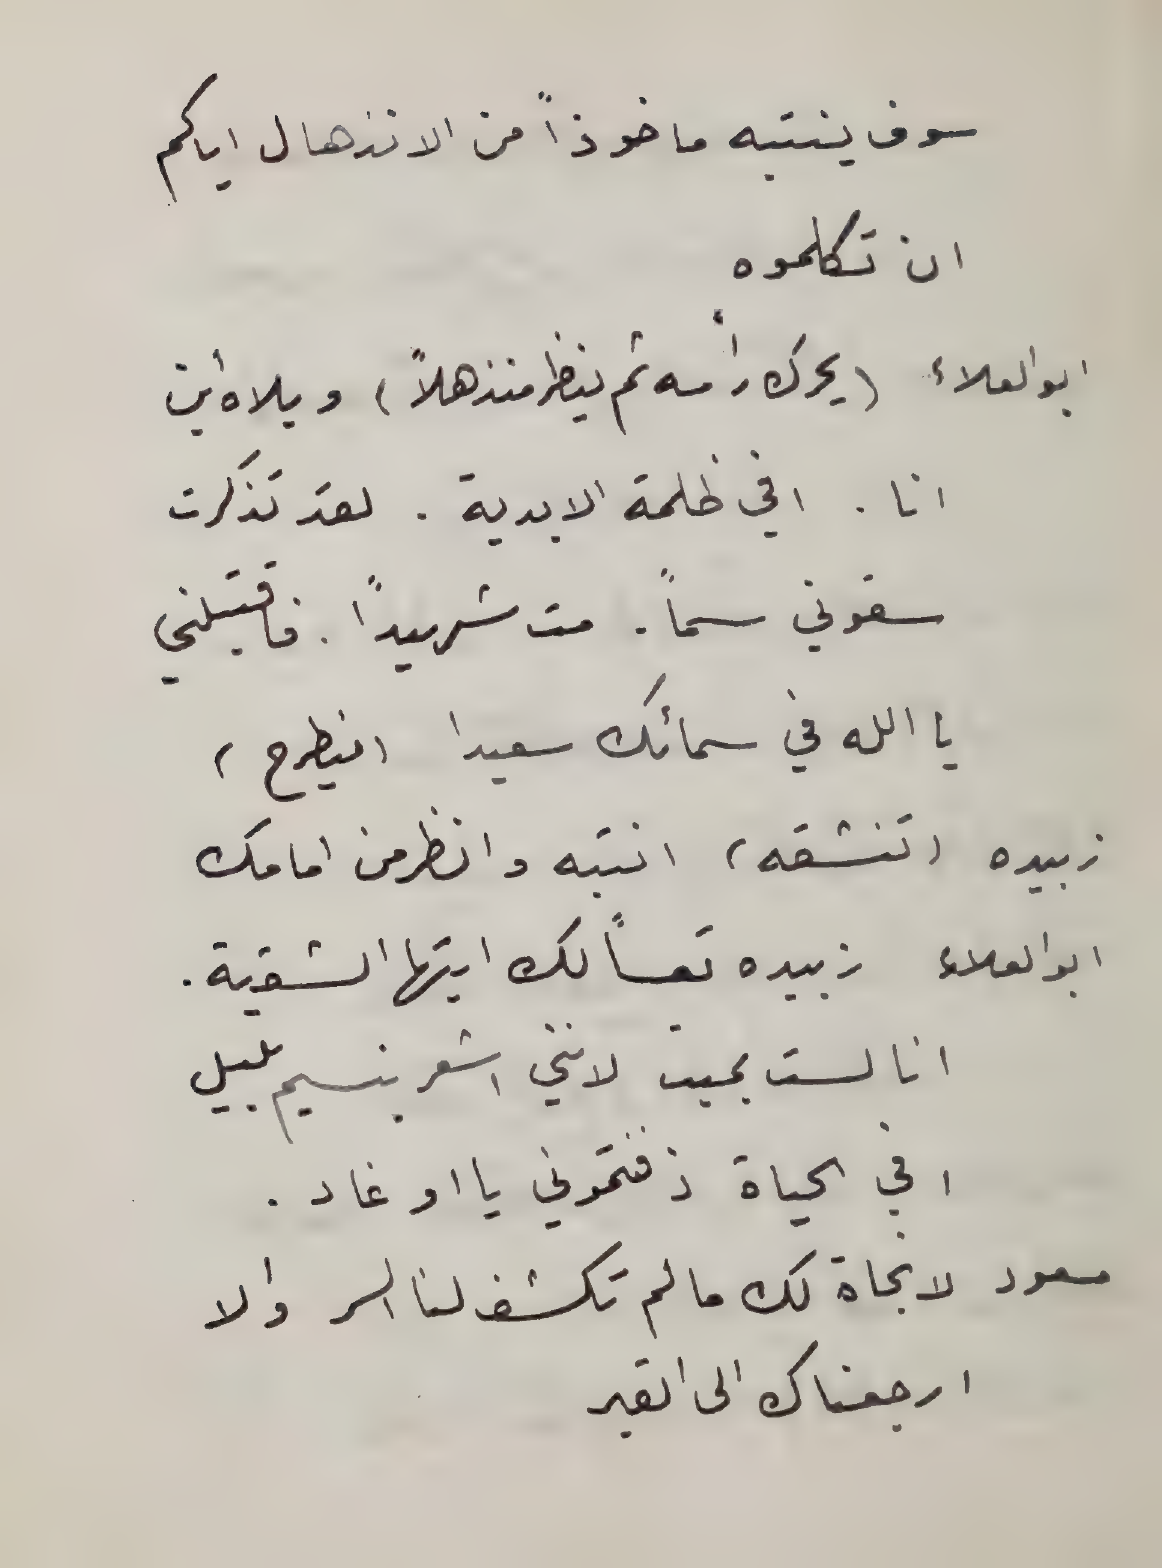 سوف ينتبه ماخوذاً من الانذهال اياكم
ان تكلموه
ابو العلاء (يحرك رأسه ثم ينظر منذهلاً) ويلاه أين
انا . افي ظلمة الابدية . لقد تذكرت
سقوني سماً . مت شهيداً . فاقبلني
يا الله في سمائك سعيدا (فيطرح)
زبيده (تنشقه) انتبه وانظر من امامك
ابو العلاء زبيده تعساً لك ايتها الشقية .
انا لست بميت لانني اشعر بنسيم بليل
افي الحياة دفنتموني يا اوغاد .
مسعود لا نجاة لك مالم تكشف لنا السر والا
ارجعناك الى القبر